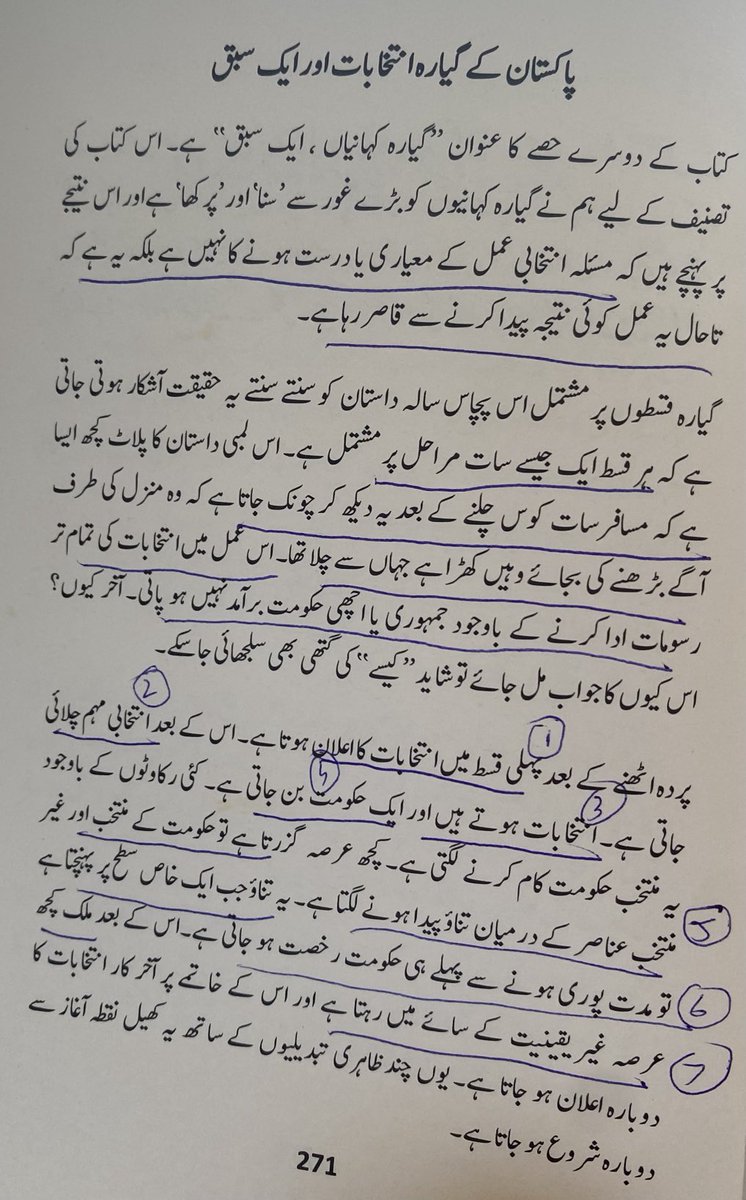 پاکستان کے گیارہ انتخابات اور ایک سبق
کتاب کے دوسرے حصے کا عنوان ”گیارہ کہانیاں، ایک سبق“ ہے۔ اس کتاب کی
تصنیف کے لیے ہم نے گیارہ کہانیوں کو بڑے غور سے ’سنا‘ اور ’پرکھا‘ ہے اور اس نتیجے
پر پہنچے ہیں کہ مسئلہ انتخابی عمل کے معیاری یا درست ہونے کا نہیں ہے بلکہ یہ ہے کہ
تاحال یہ عمل کوئی نتیجہ پیدا کرنے سے قاصر رہا ہے۔
گیارہ قسطوں پر مشتمل اس پچاس سالہ داستان کو سنتے سنتے یہ حقیقت آشکار ہوتی جاتی
ہے کہ ہر قسط ایک جیسے سات مراحل پر مشتمل ہے۔ اس لمبی داستان کا پلاٹ کچھ ایسا
ہے کہ مسافر سات کوس چلنے کے بعد یہ دیکھ کر چونک جاتا ہے کہ وہ منزل کی طرف
آگے بڑھنے کی بجائے وہیں کھڑا ہے جہاں سے چلا تھا۔ اس عمل میں انتخابات کی تمام تر
رسومات ادا کرنے کے باوجود جمہوری یا اچھی حکومت برآمد نہیں ہو پاتی۔ آخر کیوں؟
اس کیوں کا جواب مل جائے تو شاید ”کیسے“ کی گتھی بھی سلجھائی جا سکے۔
2
1
پردہ اٹھنے کے بعد پہلی قسط میں انتخابات کا اعلان ہوتا ہے۔ اس کے بعد انتخابی مہم چلائی
3
جاتی ہے۔ انتخابات ہوتے ہیں اور ایک حکومت بن جاتی ہے۔ کئی رکاوٹوں کے باوجود
یہ منتخب حکومت کام کرنے لگتی ہے۔ کچھ عرصہ گزرتا ہے تو حکومت کے منتخب اور غیر
5 منتخب عناصر کے درمیان تناؤ پیدا ہونے لگتا ہے۔ یہ تناؤ جب ایک خاص سطح پر پہنچتا ہے
6 تو مدت پوری ہونے سے پہلے ہی حکومت رخصت ہو جاتی ہے۔ اس کے بعد ملک کچھ
7 عرصہ غیر یقینیت کے سائے میں رہتا ہے اور اس کے خاتمے پر آخر کار انتخابات کا
دوبارہ اعلان ہو جاتا ہے۔ یوں چند ظاہری تبدیلیوں کے ساتھ یہ کھیل نقطہ آغاز سے
دوبارہ شروع ہو جاتا ہے۔
271